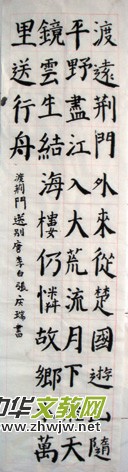 渡遠荊門外來從楚國遊隨
平野盡江入大荒流月下天
鏡雲生結海樓仍憐故鄉萬
里送行舟
渡荊門送別唐李白張成瑞書
中华文教网